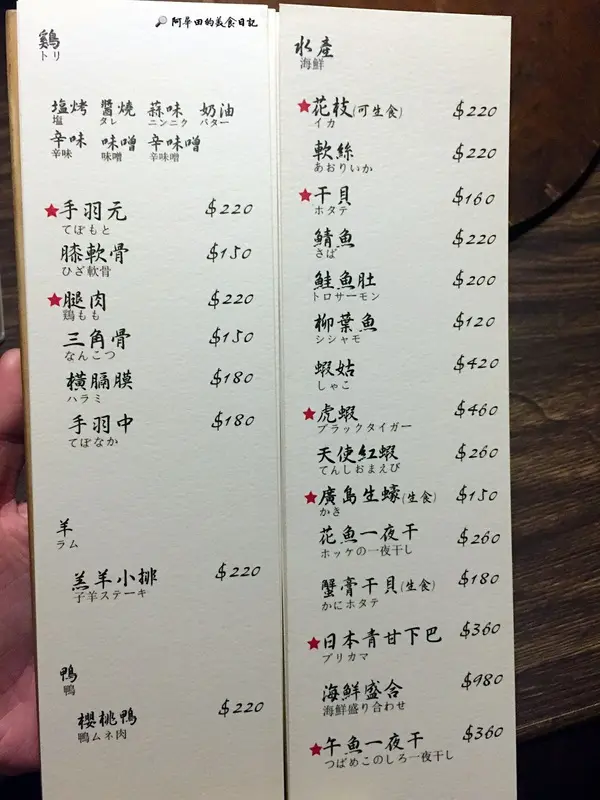 阿華田的美食日記
鷄
トリ
塩烤 醬燒 蒜味 奶油
塩 タレ ニンニク バター
辛味 味噌 辛味噌
辛味 味噌 辛味噌
手羽元 $220
てぽもと
膝軟骨 $150
ひざ軟骨
腿肉 $220
鶏もも
三角骨 $150
なんこつ
橫膈膜 $180
ハラミ
手羽中 $180
てぽなか
羊
ラム
羔羊小排 $220
子羊ステーキ
鴨
鴨
櫻桃鴨 $220
鴨ムネ肉
水產
海鮮
花枝(可生食) $220
イカ
軟絲 $220
あおりいか
干貝 $160
ホタテ
鯖魚 $220
さば
鮭魚肚 $200
トロサーモン
柳葉魚 $120
シシャモ
蝦姑 $420
しゃこ
虎蝦 $460
ブラックタイガー
天使紅蝦 $260
てんしおまえび
廣島生蠔(生食) $150
かき
花魚一夜干 $260
ホッケの一夜干し
蟹膏干貝(生食) $180
かにホタテ
日本青甘下巴 $360
ブリカマ
海鮮盛合 $980
海鮮盛り合わせ
午魚一夜干 $360
つばめこのしろ一夜干し